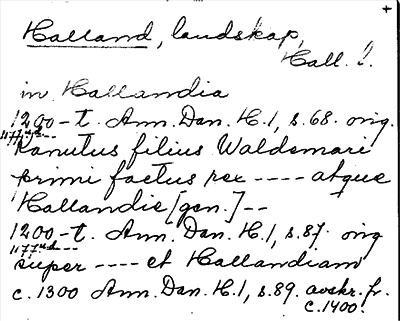 Halland, landskap,
Hall. l.
in Hallandia
1200-t. Ann. Dan. H. 1, s. 68. orig.
Kanutus filius Waldemari
primi factus rex ---- atque
Hallandie [gen.] --
1200-t. Ann. Dan. H. 1, s. 87. orig
super ---- et Hallandiam
c. 1300 Ann. Dan. H. 1, s. 89. avskr. fr.
c. 1400.